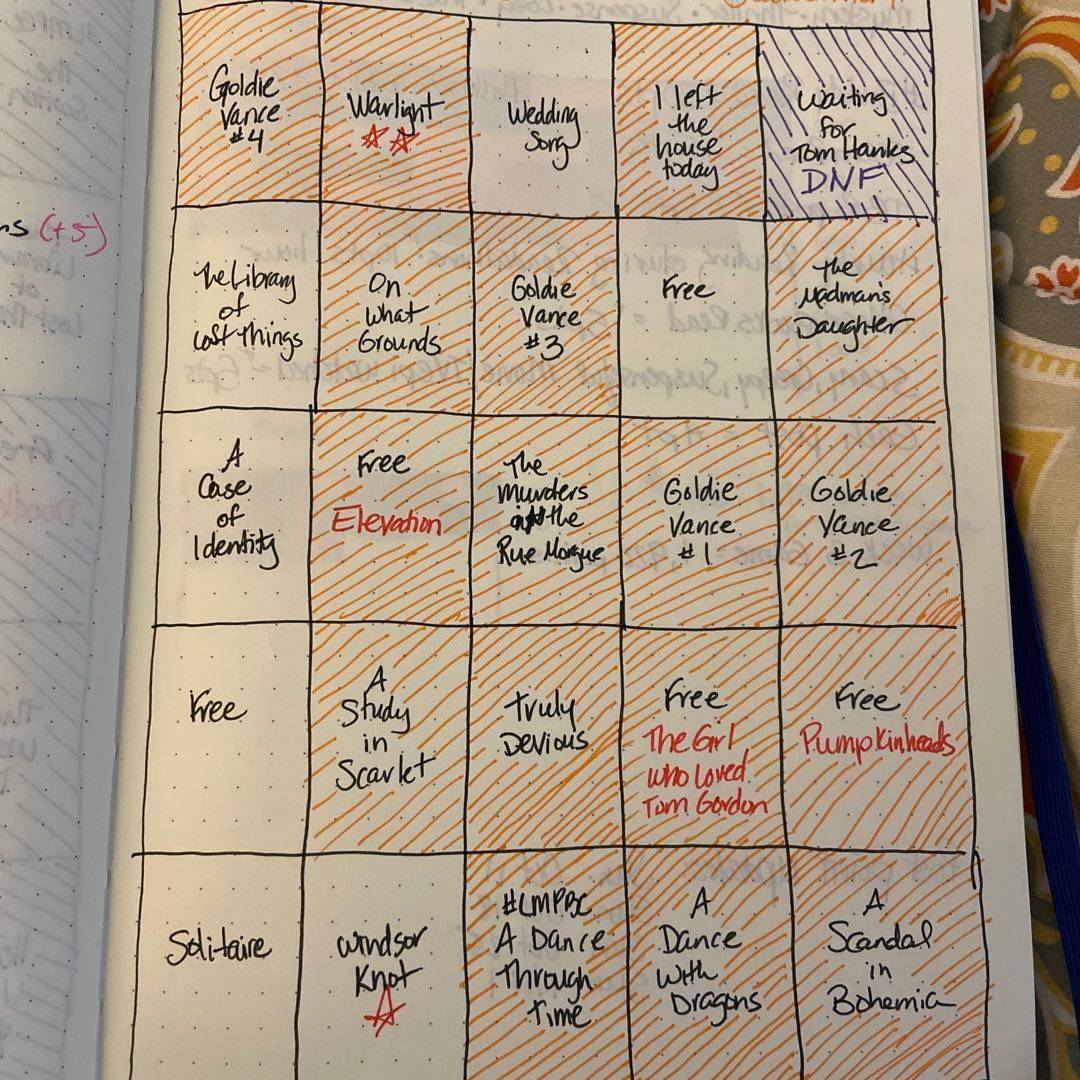 Goldie
Vance
#4
Warlight
Wedding
Song
I left
the
house
today
Waiting
for
Tom Hanks
DNF
The Library
of
Lost Things
On
What
Grounds
Goldie
Vance
#3
Free
The
Madman's
Daughter
A
Case
of
Identity
Free
Elevation
The
Murders
in the
Rue Morgue
Goldie
Vance
#1
Goldie
Vance
#2
Free
A
Study
in
Scarlet
Truly
Devious
Free
The Girl
who loved
Tom Gordon
Free
Pumpkinheads
Solitaire
Windsor
Knot
#LMPBC
A Dance
Through
Time
A
Dance
With
Dragons
A
Scandal
in
Bohemia
(+5)